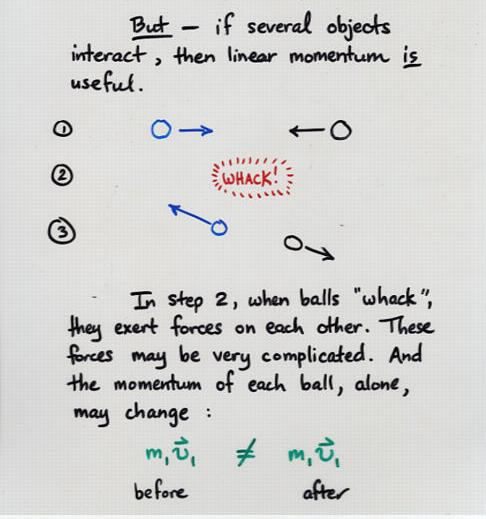 But – if several objects
interact, then linear momentum is
useful.
①
② WHACK!
③
In step 2, when balls "whack",
they exert forces on each other. These
forces may be very complicated. And
the momentum of each ball, alone,
may change :
m₁v⃗₁ ≠ m₁v⃗₁
before after